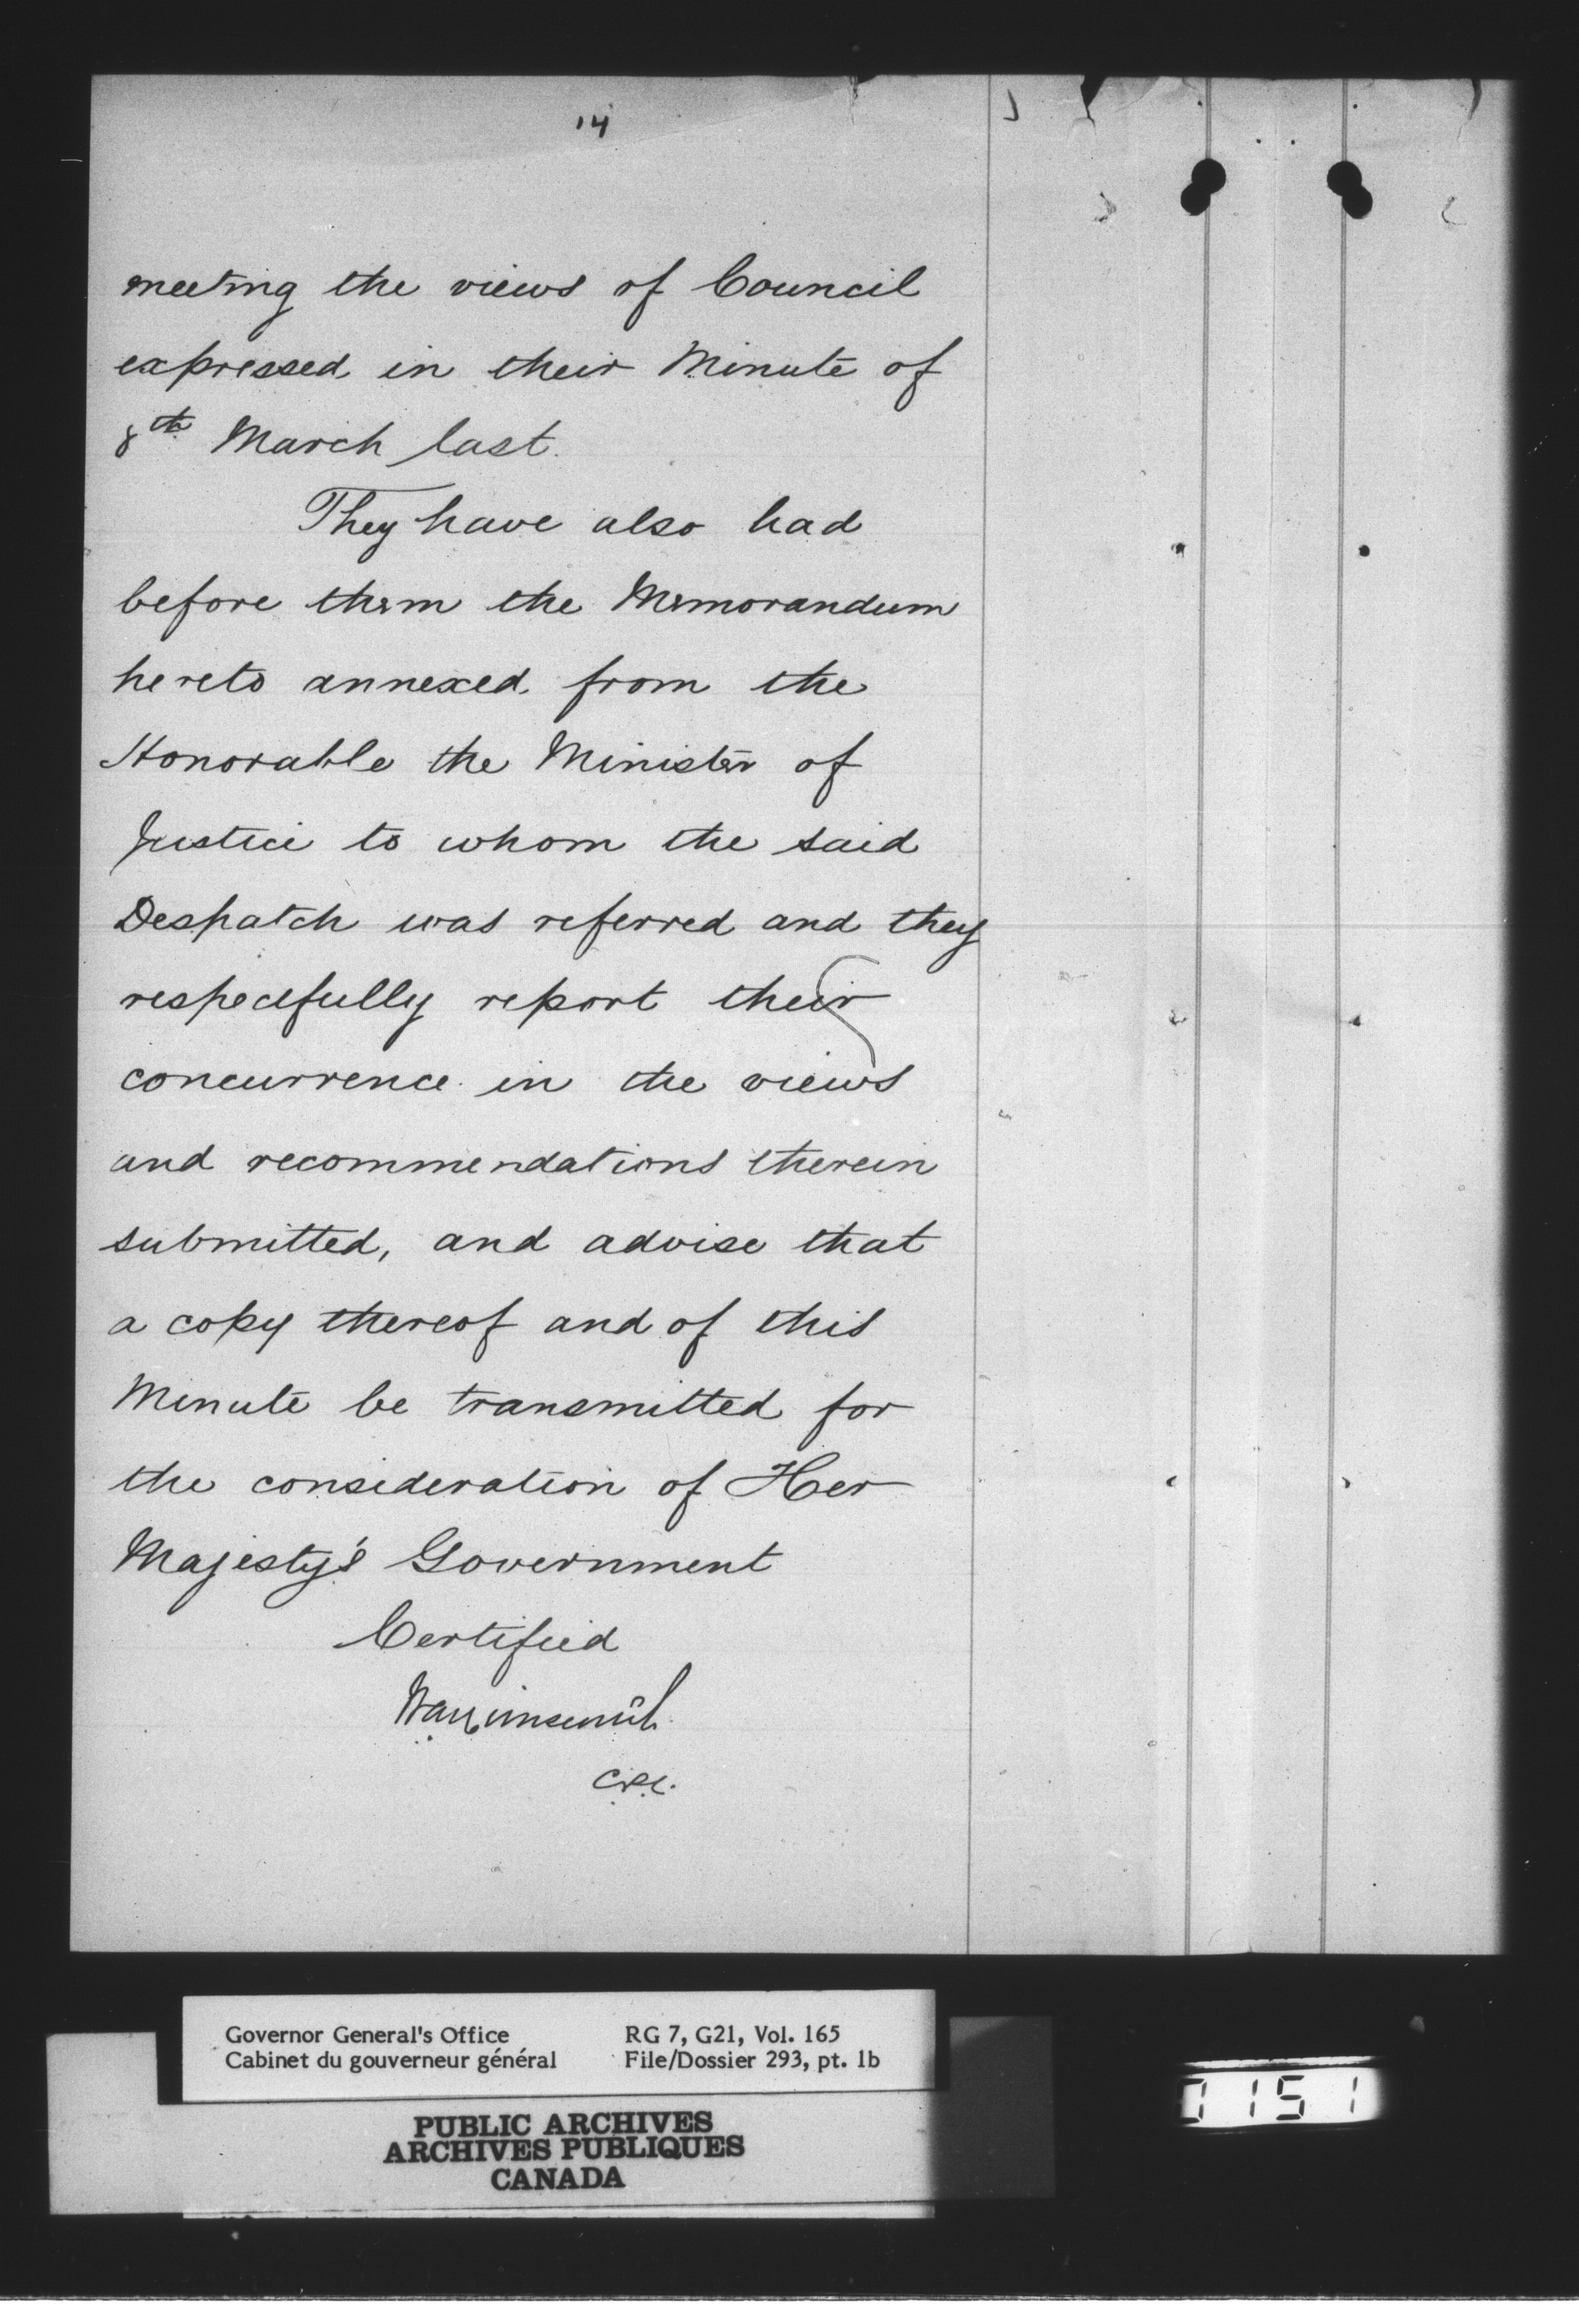 14
meeting the views of Council
expressed in their Minute of
8th March last.
They have also had
before them the Memorandum
hereto annexed from the
Honorable the Minister of
Justice to whom the said
Despatch was referred and they
respectfully report their
concurrence in the views
and recommendations therein
submitted, and advise that
a copy thereof and of this
Minute be transmitted for
the consideration of Her
Majesty's Government
Certified
C.P.C.
Governor General's Office
Cabinet du gouverneur général
RG 7, G21, Vol. 165
File/Dossier 293, pt. 1b
PUBLIC ARCHIVES
ARCHIVES PUBLIQUES
CANADA
0151